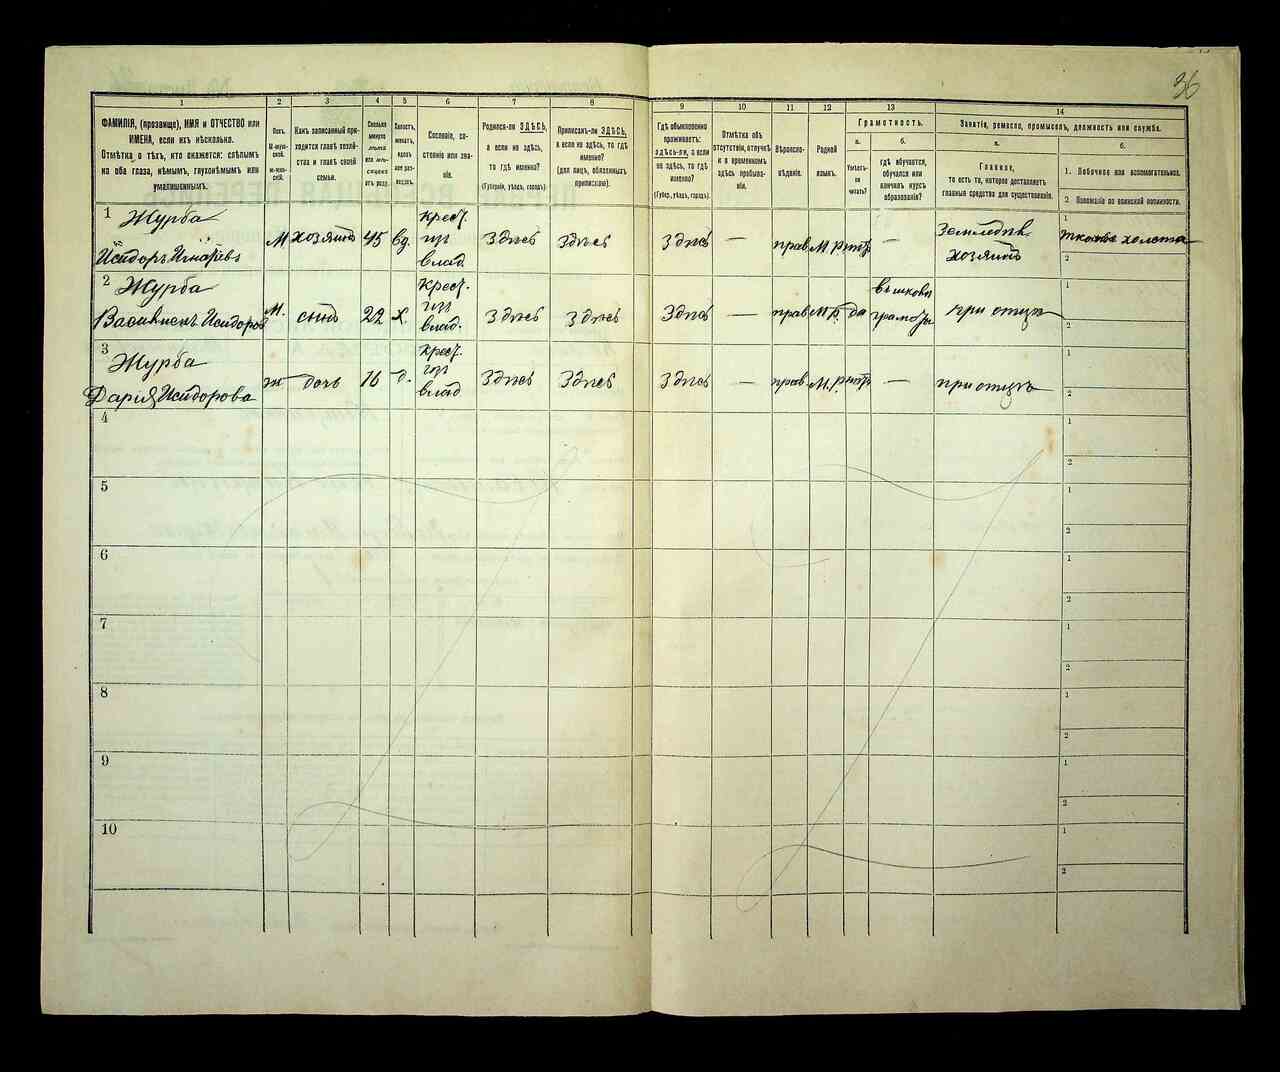 36
1
2
3
4
5
6
7
8
9
10
11
12
13
14
ФАМИЛІЯ, (прозвище), ИМЯ и ОТЧЕСТВО или
ИМЕНА, если ихъ нѣсколько.
Отмѣтка о тѣхъ, кто окажется: слѣпымъ
на оба глаза, нѣмымъ, глухонѣмымъ или
умалишеннымъ.
Полъ.
М-муж-
ской.
ж-жен-
скій.
Какъ записанный при-
ходится главѣ хозяй-
ства и главѣ своей
семьи.
Сколько
минуло
лѣтъ
или мѣ-
сяцевъ
отъ роду.
Холостъ,
женатъ,
вдовъ
или раз-
веденъ.
Сословіе, со-
стояніе или зва-
ніе.
Родился-ли ЗДѢСЬ,
а если не здѣсь,
то гдѣ именно?
(Губернія, уѣздъ, городъ).
Приписанъ-ли ЗДѢСЬ,
а если не здѣсь, то гдѣ
именно?
(для лицъ, обязанныхъ
припискою).
Гдѣ обыкновенно
проживаетъ:
здѣсь-ли, а если
не здѣсь, то гдѣ
именно?
(Губер., уѣздъ, городъ).
Отмѣтка объ
отсутствіи, отлучкѣ
и о временномъ
здѣсь пребыва-
ніи.
Вѣроиспо-
вѣданіе.
Родной
языкъ.
Грамотность.
а.
Умѣетъ-
ли
читать?
б.
гдѣ обучается,
обучался или
кончилъ курсъ
образованія?
Занятіе, ремесло, промыселъ, должность или служба.
а.
Главное,
то есть то, которое доставляетъ
главныя средства для существованія.
б.
1. Побочное или вспомогательное.
2. Положеніе по воинской повинности.
1 Журба
Исидоръ Игнатьевъ
М хозяинъ 45 вд.
крест.
изъ
влад.
Здѣсь Здѣсь Здѣсь — прав М.Р нѣтъ —
Земледѣл.
хозяинъ
1 тканье холста
2
2 Журба
Исидоров
М. сынъ 22 х.
крест.
изъ
влад.
Здѣсь Здѣсь Здѣсь — прав М.Р. да
въ школы
грамоты
при отцѣ
1
2
3 Журба
Дарія Исидорова
ж дочь 16 д.
крест.
изъ
влад
Здѣсь Здѣсь Здѣсь — прав М.Р. нѣтъ — при отцѣ
1
2
4
1
2
5
1
2
6
1
2
7
1
2
8
1
2
9
1
2
10
1
2